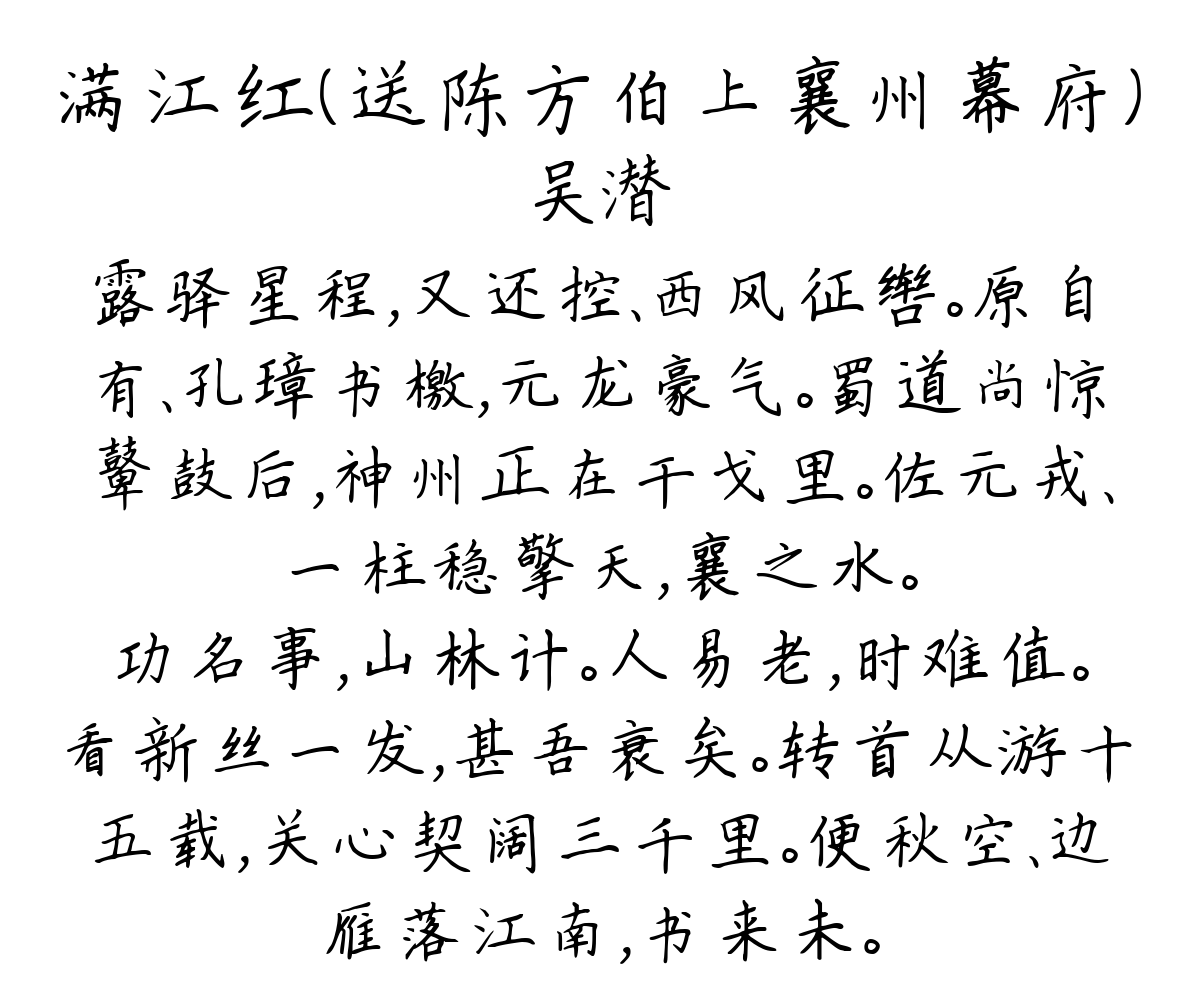 满江红(送陈方伯上襄州幕府)
吴潜
露驿星程,又还控、西风征辔。原自
有、孔璋书檄,元龙豪气。蜀道尚惊
鼙鼓后,神州正在干戈里。佐元戎、
一柱稳擎天,襄之水。
功名事,山林计。人易老,时难值。
看新丝一发,甚吾衰矣。转首从游十
五载,关心契阔三千里。便秋空、边
雁落江南,书来未。